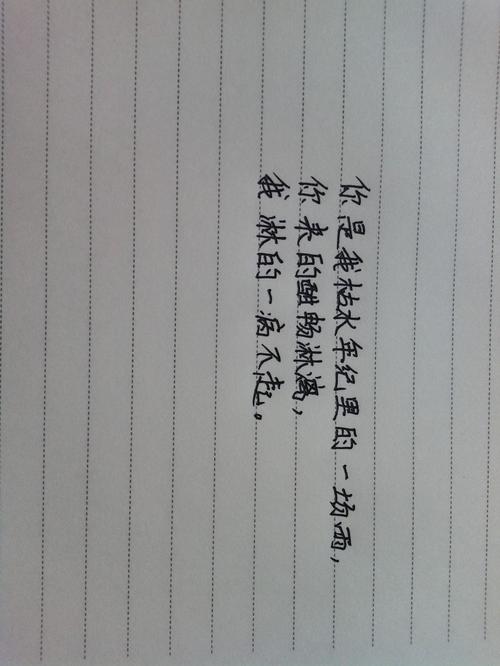 你是我枯水年纪里的一场雨，
你来的酣畅淋漓，
我淋的一病不起。